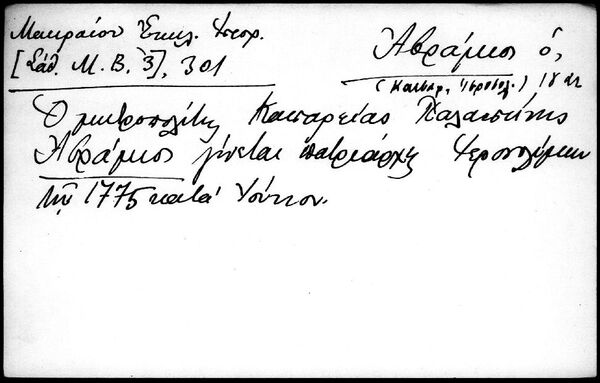 Μακραίου Ἐκκλ. Ἱστορ.
[Σάθ. Μ. Β. 3], 301
Ἀβράμιος ὁ,
(Καισαρ., Ἱεροσολ.) 18 αι
Ὁ μητροπολίτης Καισαρείας Παλαιστίνης
Ἀβράμιος γίνεται πατριάρχης Ἱεροσολύμων
τῷ 1775 κατά Ἰούνιον.